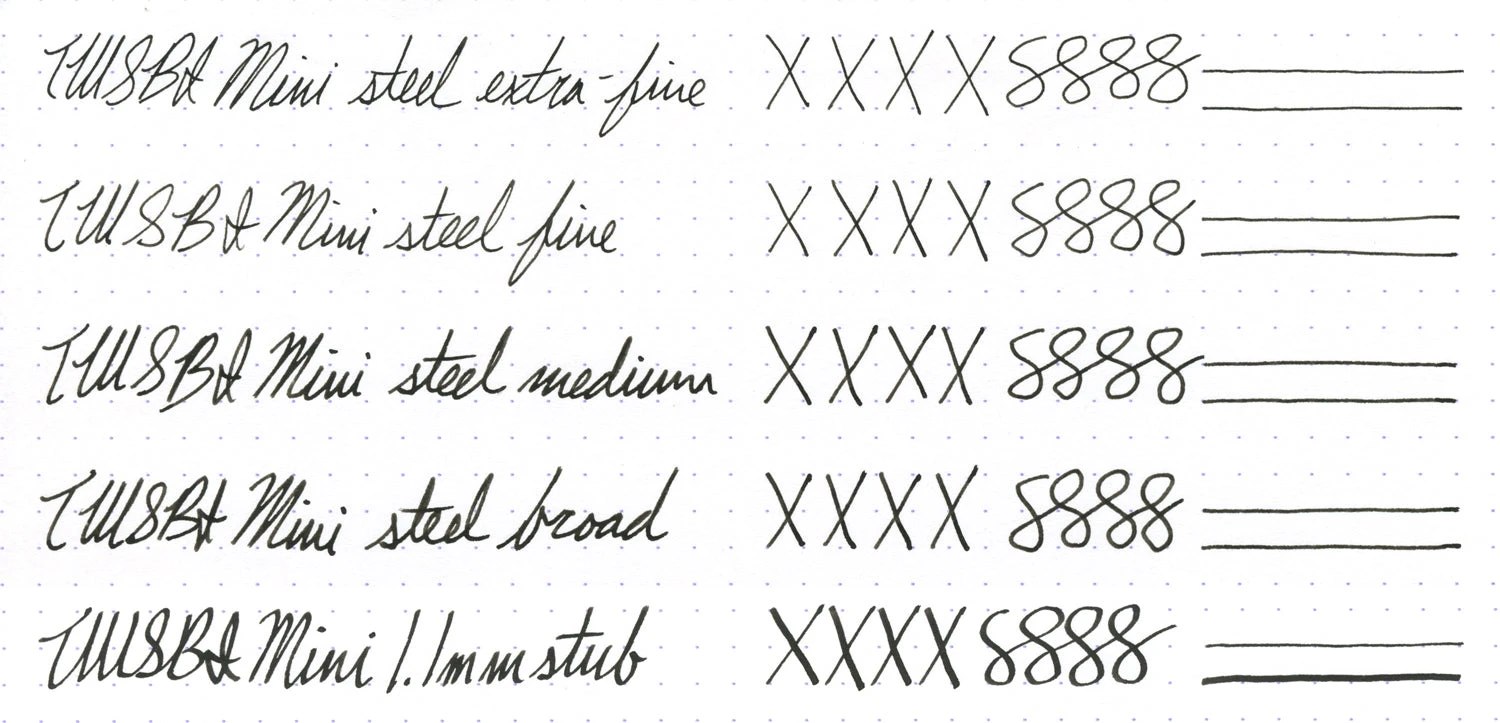 TWSBI Mini steel extra-fine XXXX 8888
TWSBI Mini steel fine XXXX 8888
TWSBI Mini steel medium XXXX 8888
TWSBI Mini steel broad XXXX 8888
TWSBI Mini 1.1mm stub XXXX 8888